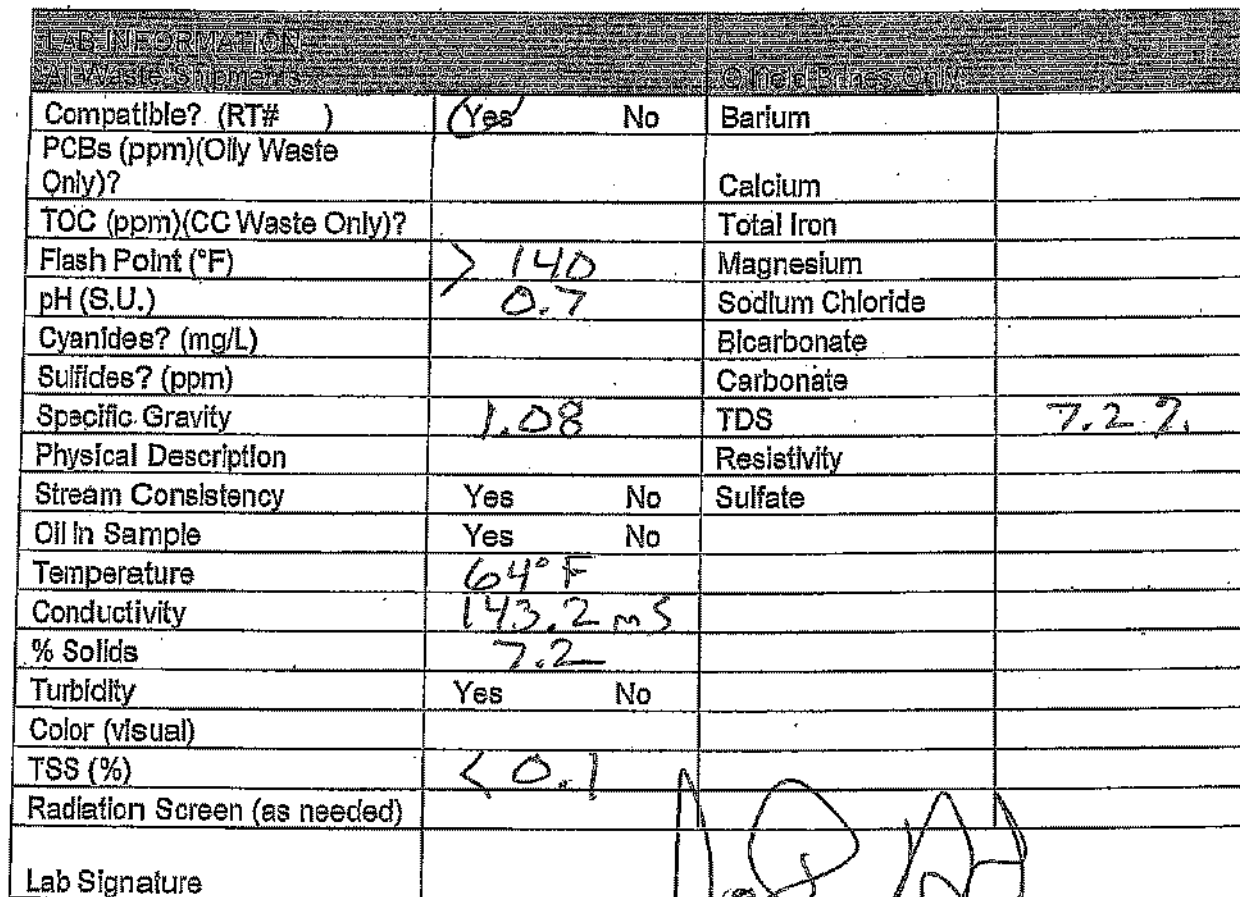 LAB INFORMATION
All Waste Shipments Oilfield Brines Only
Compatible? (RT# ) Yes No Barium
PCBs (ppm)(Oily Waste
Only)? Calcium
TOC (ppm)(CC Waste Only)? Total Iron
Flash Point (°F) > 140 Magnesium
pH (S.U.) 0.7 Sodium Chloride
Cyanides? (mg/L) Bicarbonate
Sulfides? (ppm) Carbonate
Specific Gravity 1.08 TDS 7.2%
Physical Description Resistivity
Stream Consistency Yes No Sulfate
Oil in Sample Yes No
Temperature 64° F
Conductivity 143.2 mS
% Solids 7.2
Turbidity Yes No
Color (visual)
TSS (%) < 0.1
Radiation Screen (as needed)
Lab Signature